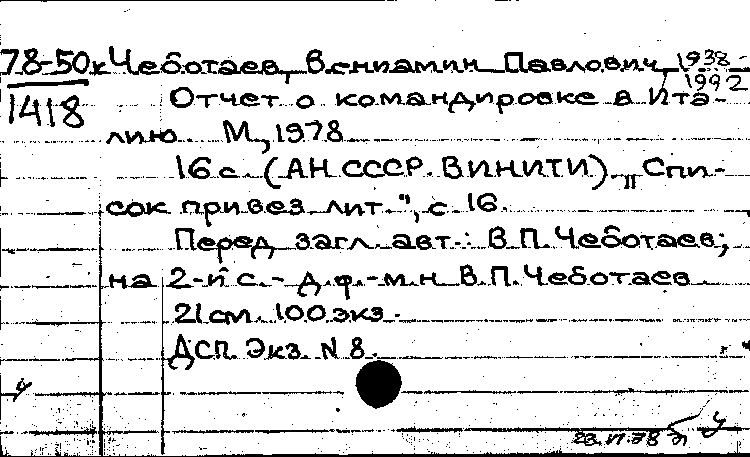 78-50к Чеботаев, Вениамин Павлович, 1938-
1992
1418 Отчет о командировке в Ита-
лию. М., 1978.
16 с. (АН СССР. ВИНИТИ). „Спи-
сок привез. лит.", с. 16.
Перед загл. авт.: В.П. Чеботаев;
на 2-й с. - д.ф.-м.н. В.П. Чеботаев.
21 см. 100 экз.
ДСП. Экз. N 8.
у
23.VI.78 л у